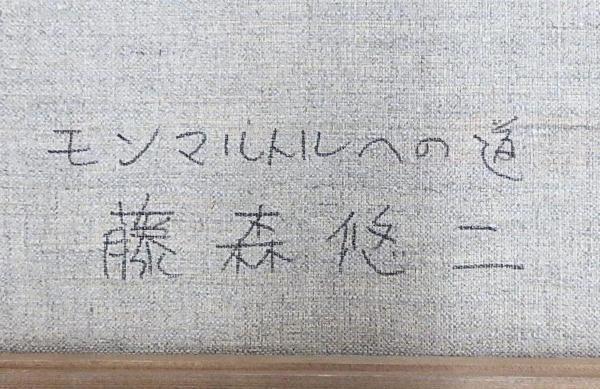 モンマルトルへの道
藤森悠二